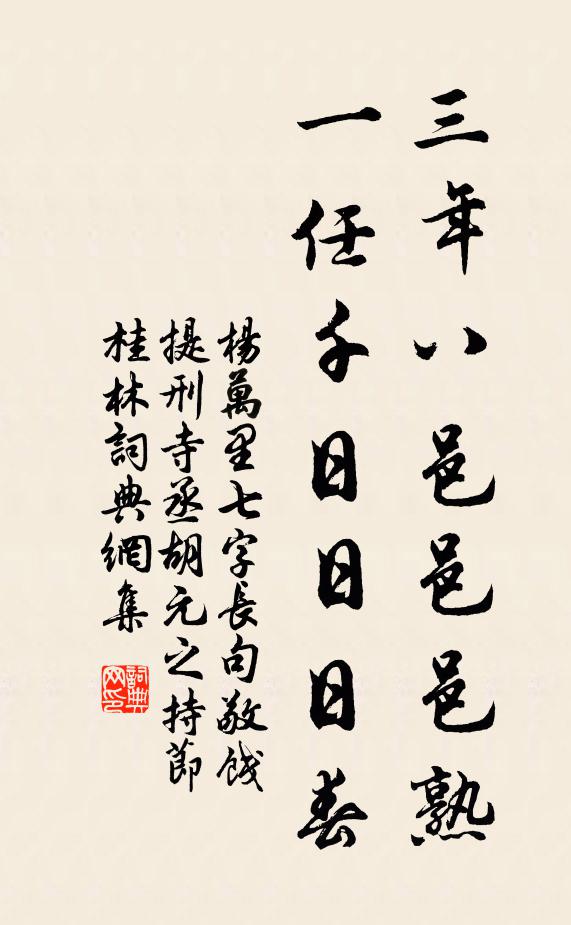 三年八邑邑邑熟
一任千日日日春
楊萬里七字長句敬餞
提刑寺丞胡元之持節
桂林詞典網集
詞典
网印